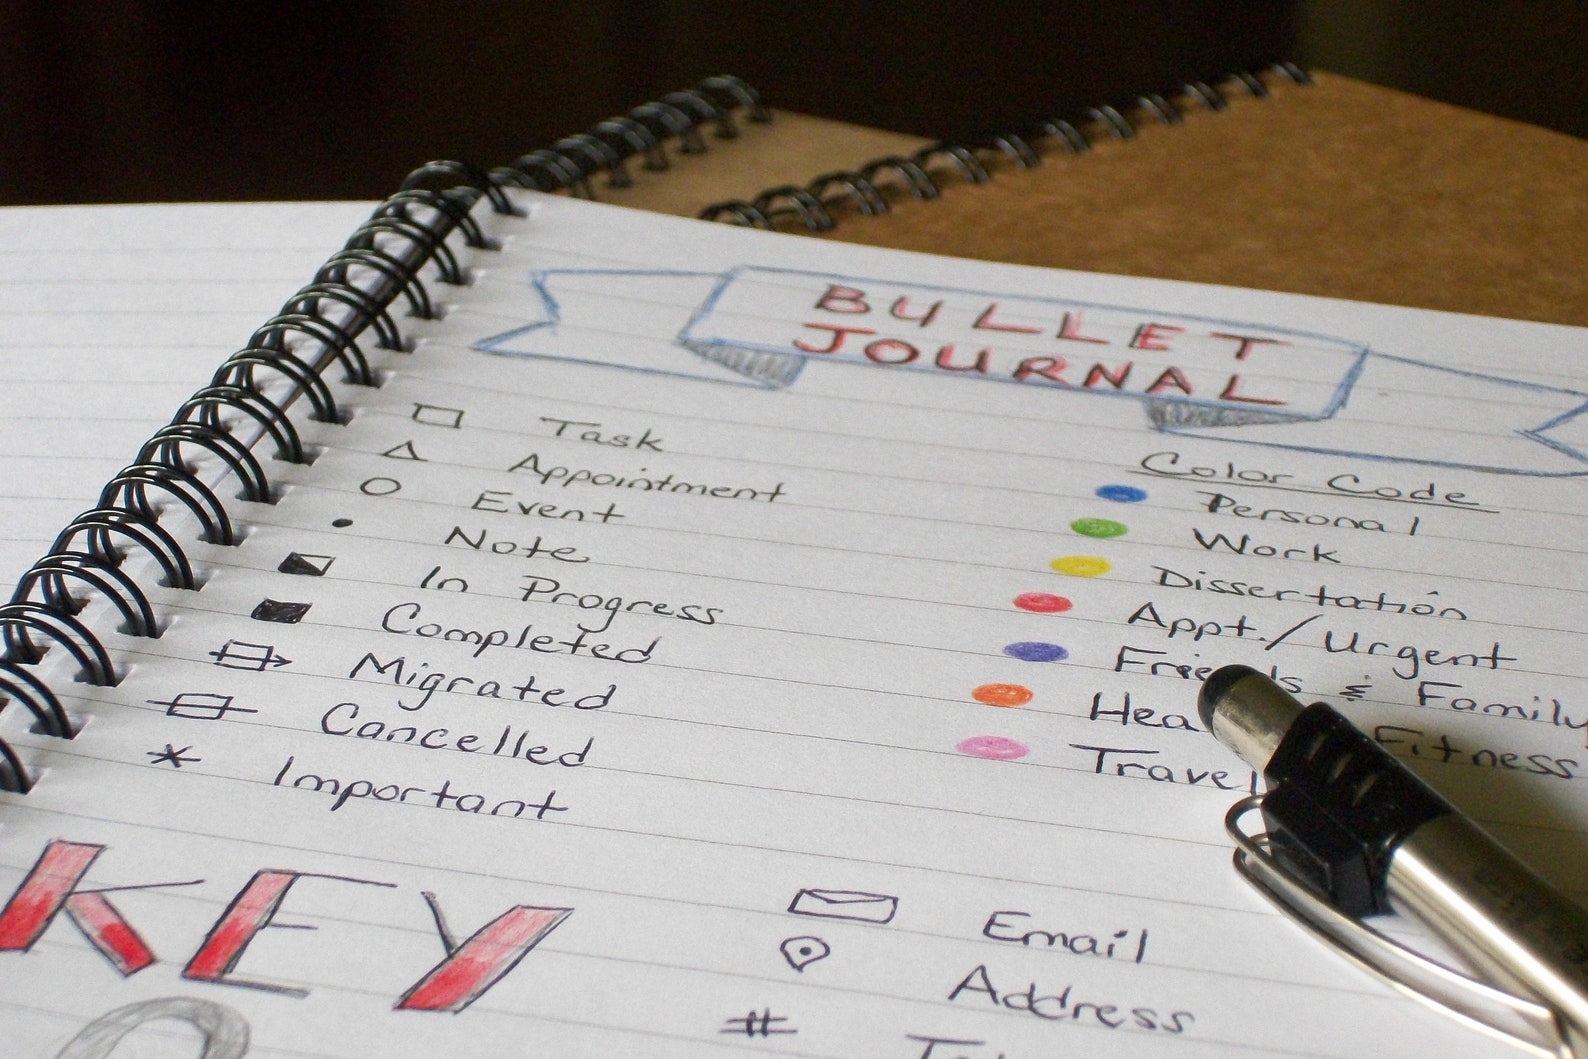 BULLET
JOURNAL
Task
Appointment
Event
Note
In Progress
Completed
Migrated
Cancelled
Important
Color Code
Personal
Work
Dissertation
Appt./Urgent
& Family
Fitness
Travel
KEY
Email
Address
#